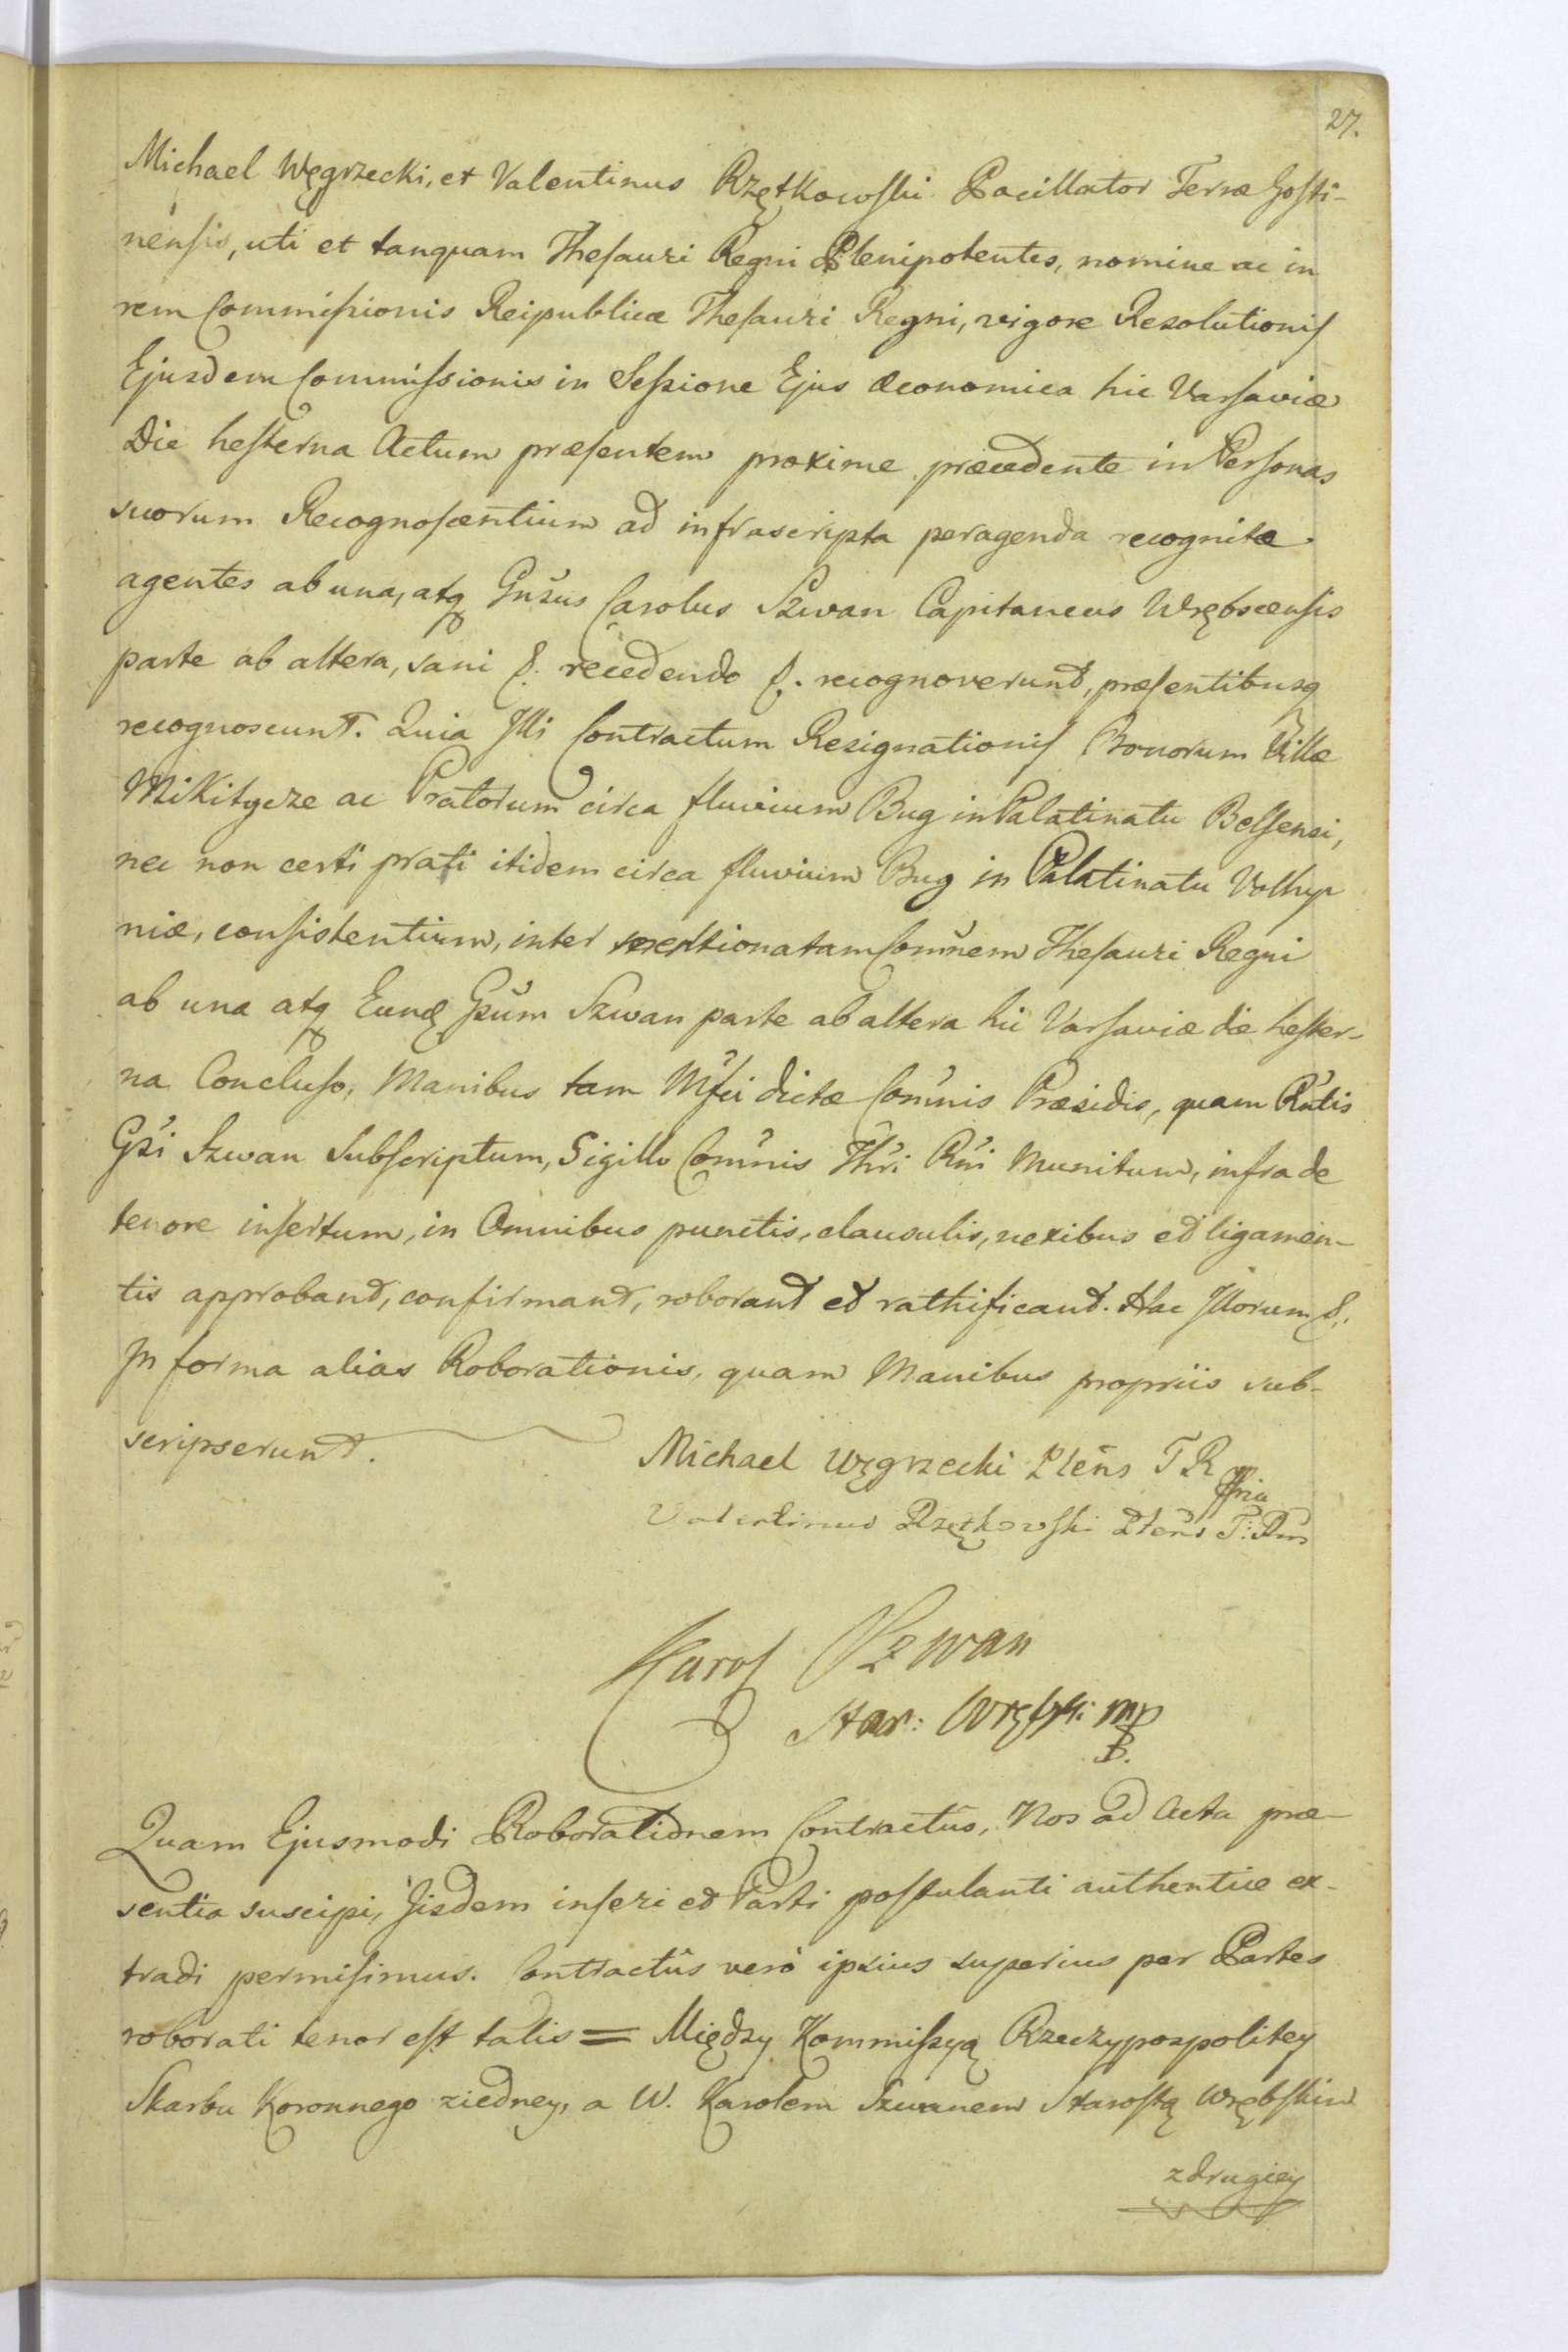 27.
Michael Węgrzecki, et Valentinus Rzętkowski Pocillator Terræ Gosti-
nensis, uti et tanquam Thesauri Regni Plenipotentes, nomine ac in
rem Commissionis Reipublicæ Thesauri Regni, vigore Resolutionis
Ejusdem Commissionis in Sessione Ejus Œconomica hic Varsaviæ
Die hesterna Actum præsentem proxime præcedente in Personas
suorum Recognoscentium ad infrascripta peragenda recognitæ
agentes ab una, atq Gn̄sus Carolus Szwan Capitaneus Wrębscensis
parte ab altera, sani &. recedendo &. recognoverunt, præsentibusq
recognoscunt. Quia Illi Contractum Resignationis Bonorum Villæ
Mikitycze ac Pratorum circa fluvium Bug in Palatinatu Belsensi,
nec non certi prati itidem circa fluvium Bug in Palatinatu Volhyn
niæ, consistentium, inter mentionatam Com̄nem Thesauri Regni
ab una atq Eund Gsūm Szwan parte ab altera hic Varsaviæ die hester-
na Concluso, Manibus tam Mf̄ci dictæ Com̄nis Præsidis, quam Rn̄tis
Gs̄i Szwan Subscriptum, Sigillo Com̄nis Thr̄i Rn̄i Munitum, infra de
tenore insertum, in Omnibus punctis, clausulis, nexibus et ligamen-
tis approband, confirmant, roborant et rathificant. Hac Illorum &.
In forma alias Roborationis, quam Manibus propriis sub-
scripserunt.
Michael Węgrzecki Plēns T R
Valentinus Rzętkowski Plēns T: Rni
Karol Szwan
Star: Wrębski mp
Quam Ejusmodi Roborationem Contractûs, Nos ad Acta præ-
sentia suscipi, Iisdem inseri et Parti postulanti authentice ex-
tradi permisimus. Contractûs verò ipsius superius per Partes
roborati tenor est talis = Między Kommissyą Rzeczypospolitey
Skarbu Koronnego ziedney, a W. Karolem Szwanem Starostą Wrębskim
zdrugiey